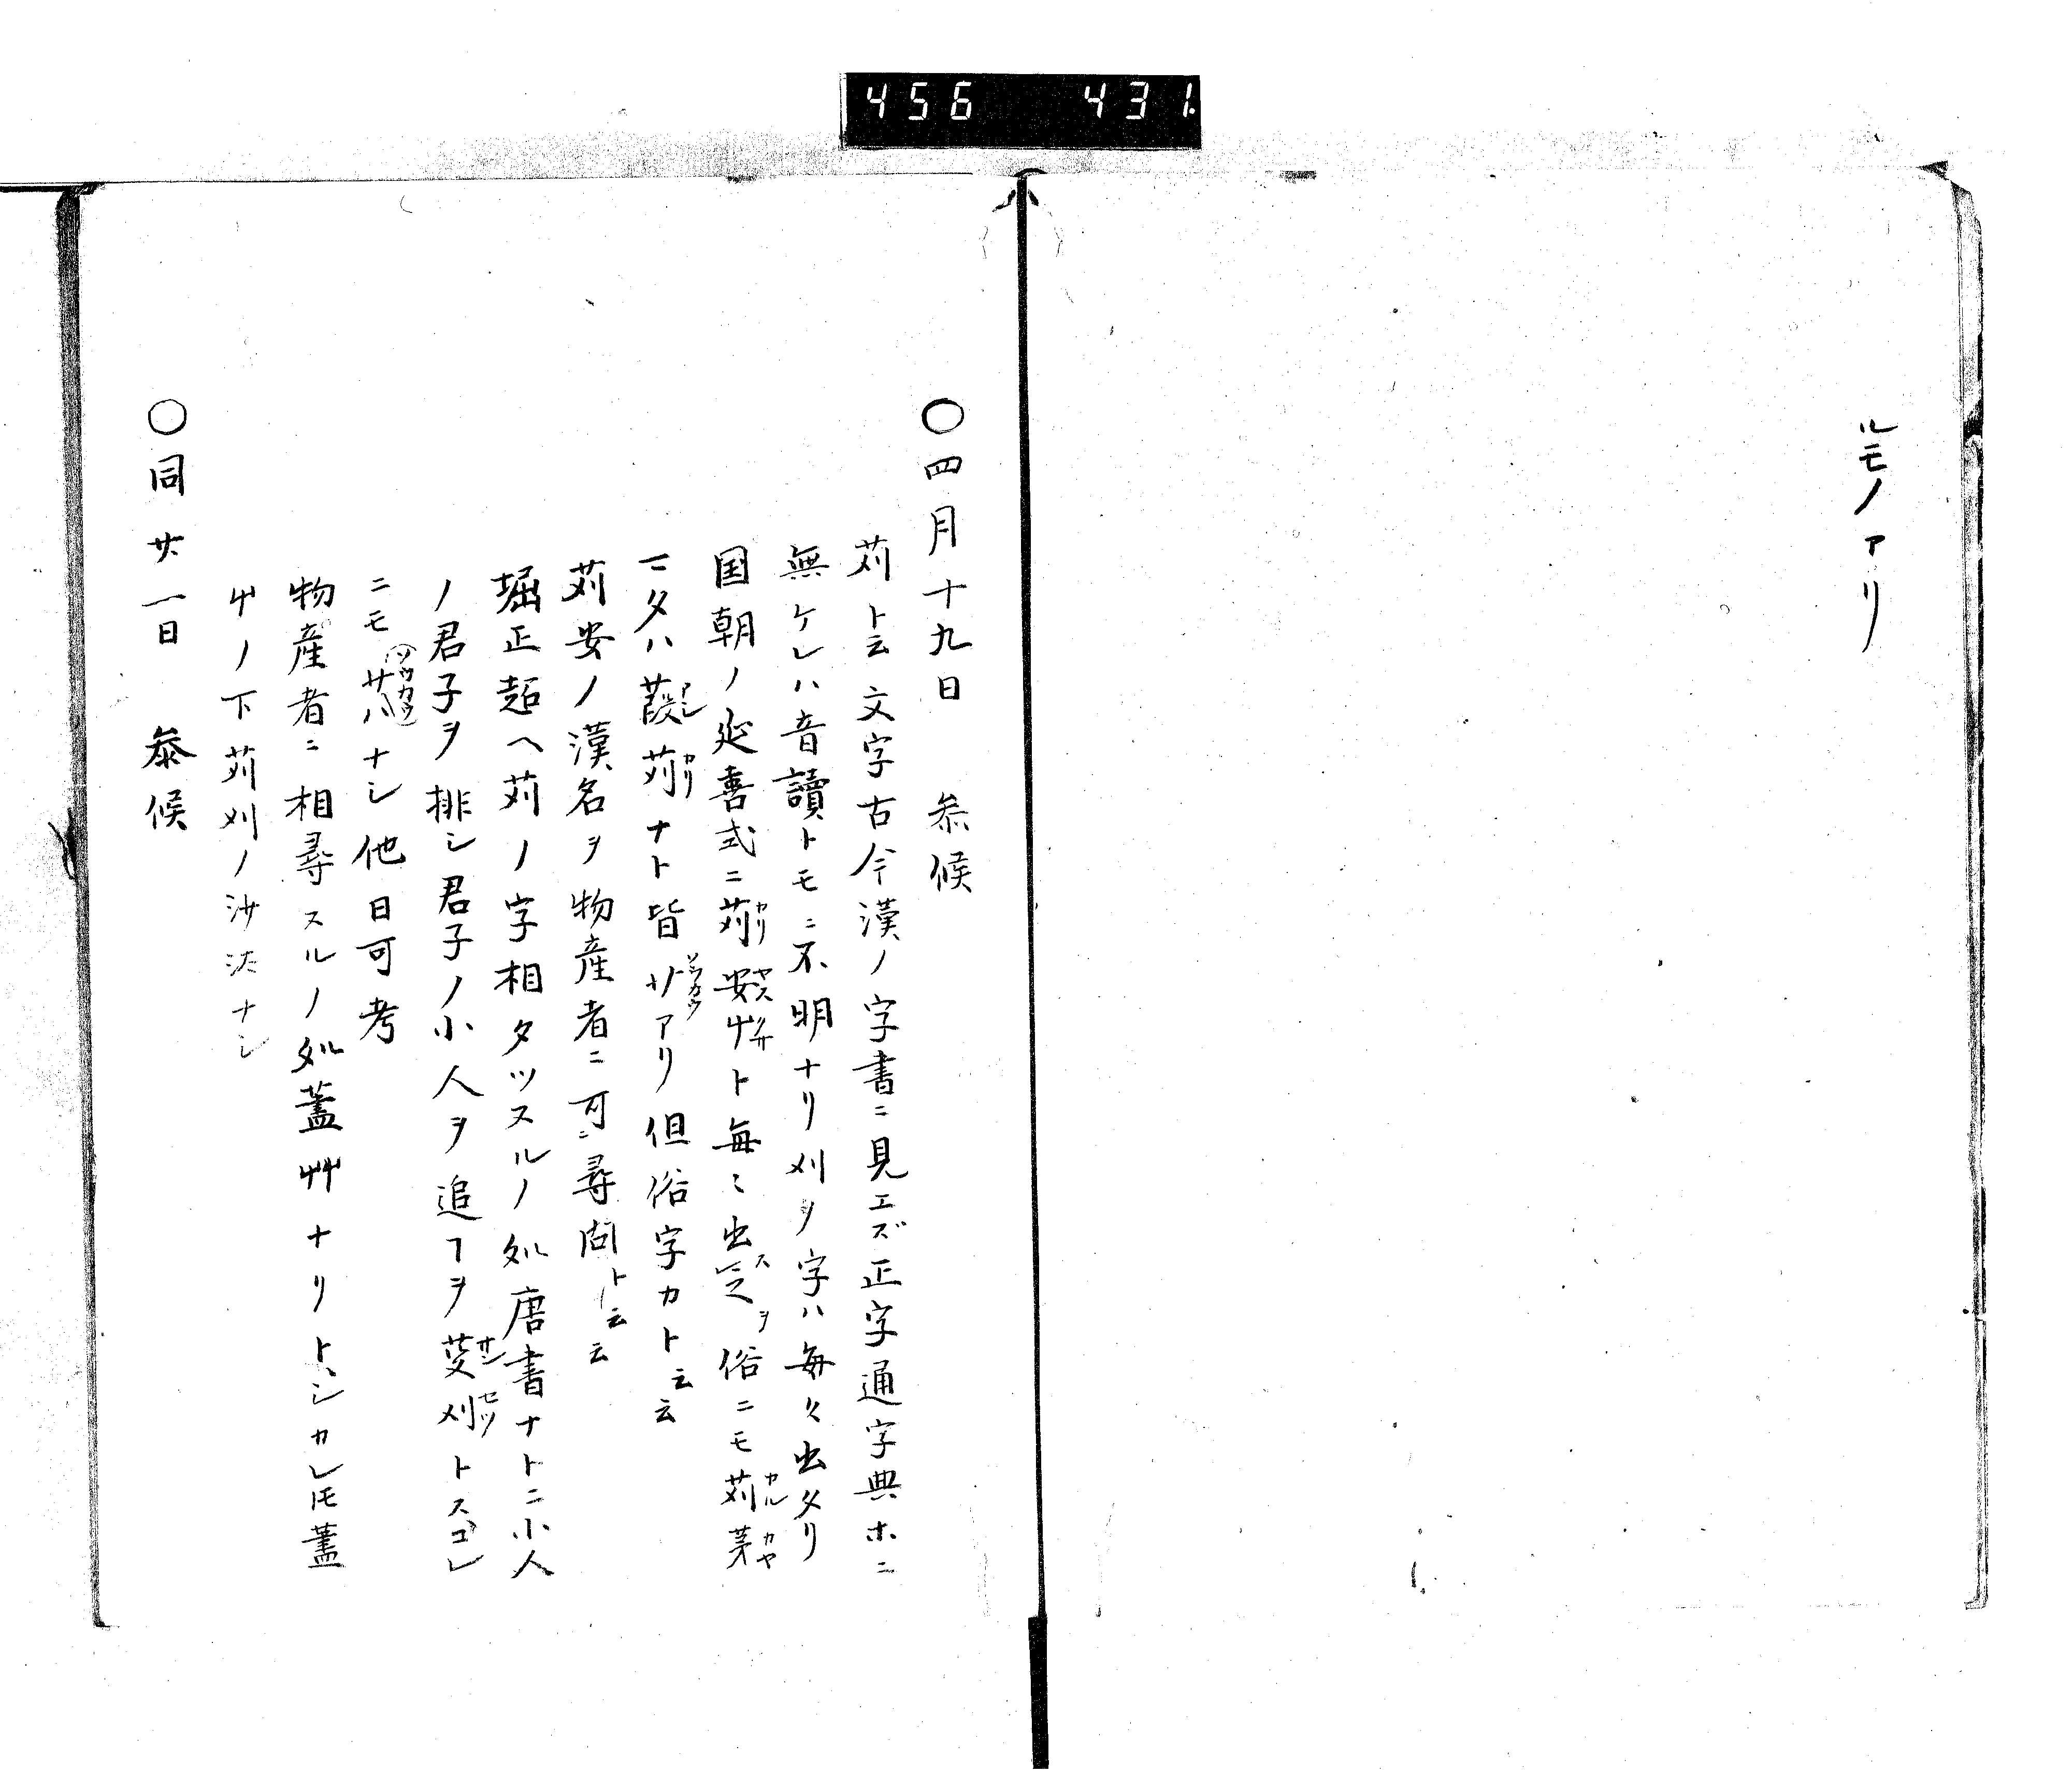 456 431.
ルモノアリ
〇四月十九日 叅候
苅ト云文字古今漢ノ字書ニ見エズ正字通字典ホニ
無ケレハ音讀トモニ不明ナリ刈ノ字ハ毎々出タリ
国朝ノ延喜式ニ苅安艸ト毎〻出ス之ヲ俗ニモ苅茅
マタハ葭苅ナト皆サアリ但俗字カト云云
苅安ノ漢名ヲ物産者ニ可尋問ト云云
堀正超ヘ苅ノ字相タツスルノ処唐書ナトニ小人
ノ君子ヲ排シ君子ノ小人ヲ追フヲ芟刈トスコレ
ニモサハナシ他日可考
物産者ニ相尋スルノ処藎艸ナリトシカレ𪜈藎
艸ノ下苅刈ノ沙汰ナシ
〇同廿一日 叅候